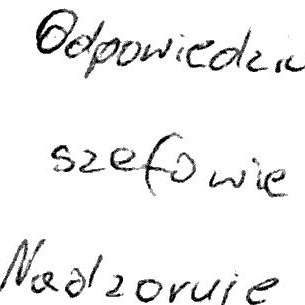 Odpowiedzin
szefowie
Nadzoruje